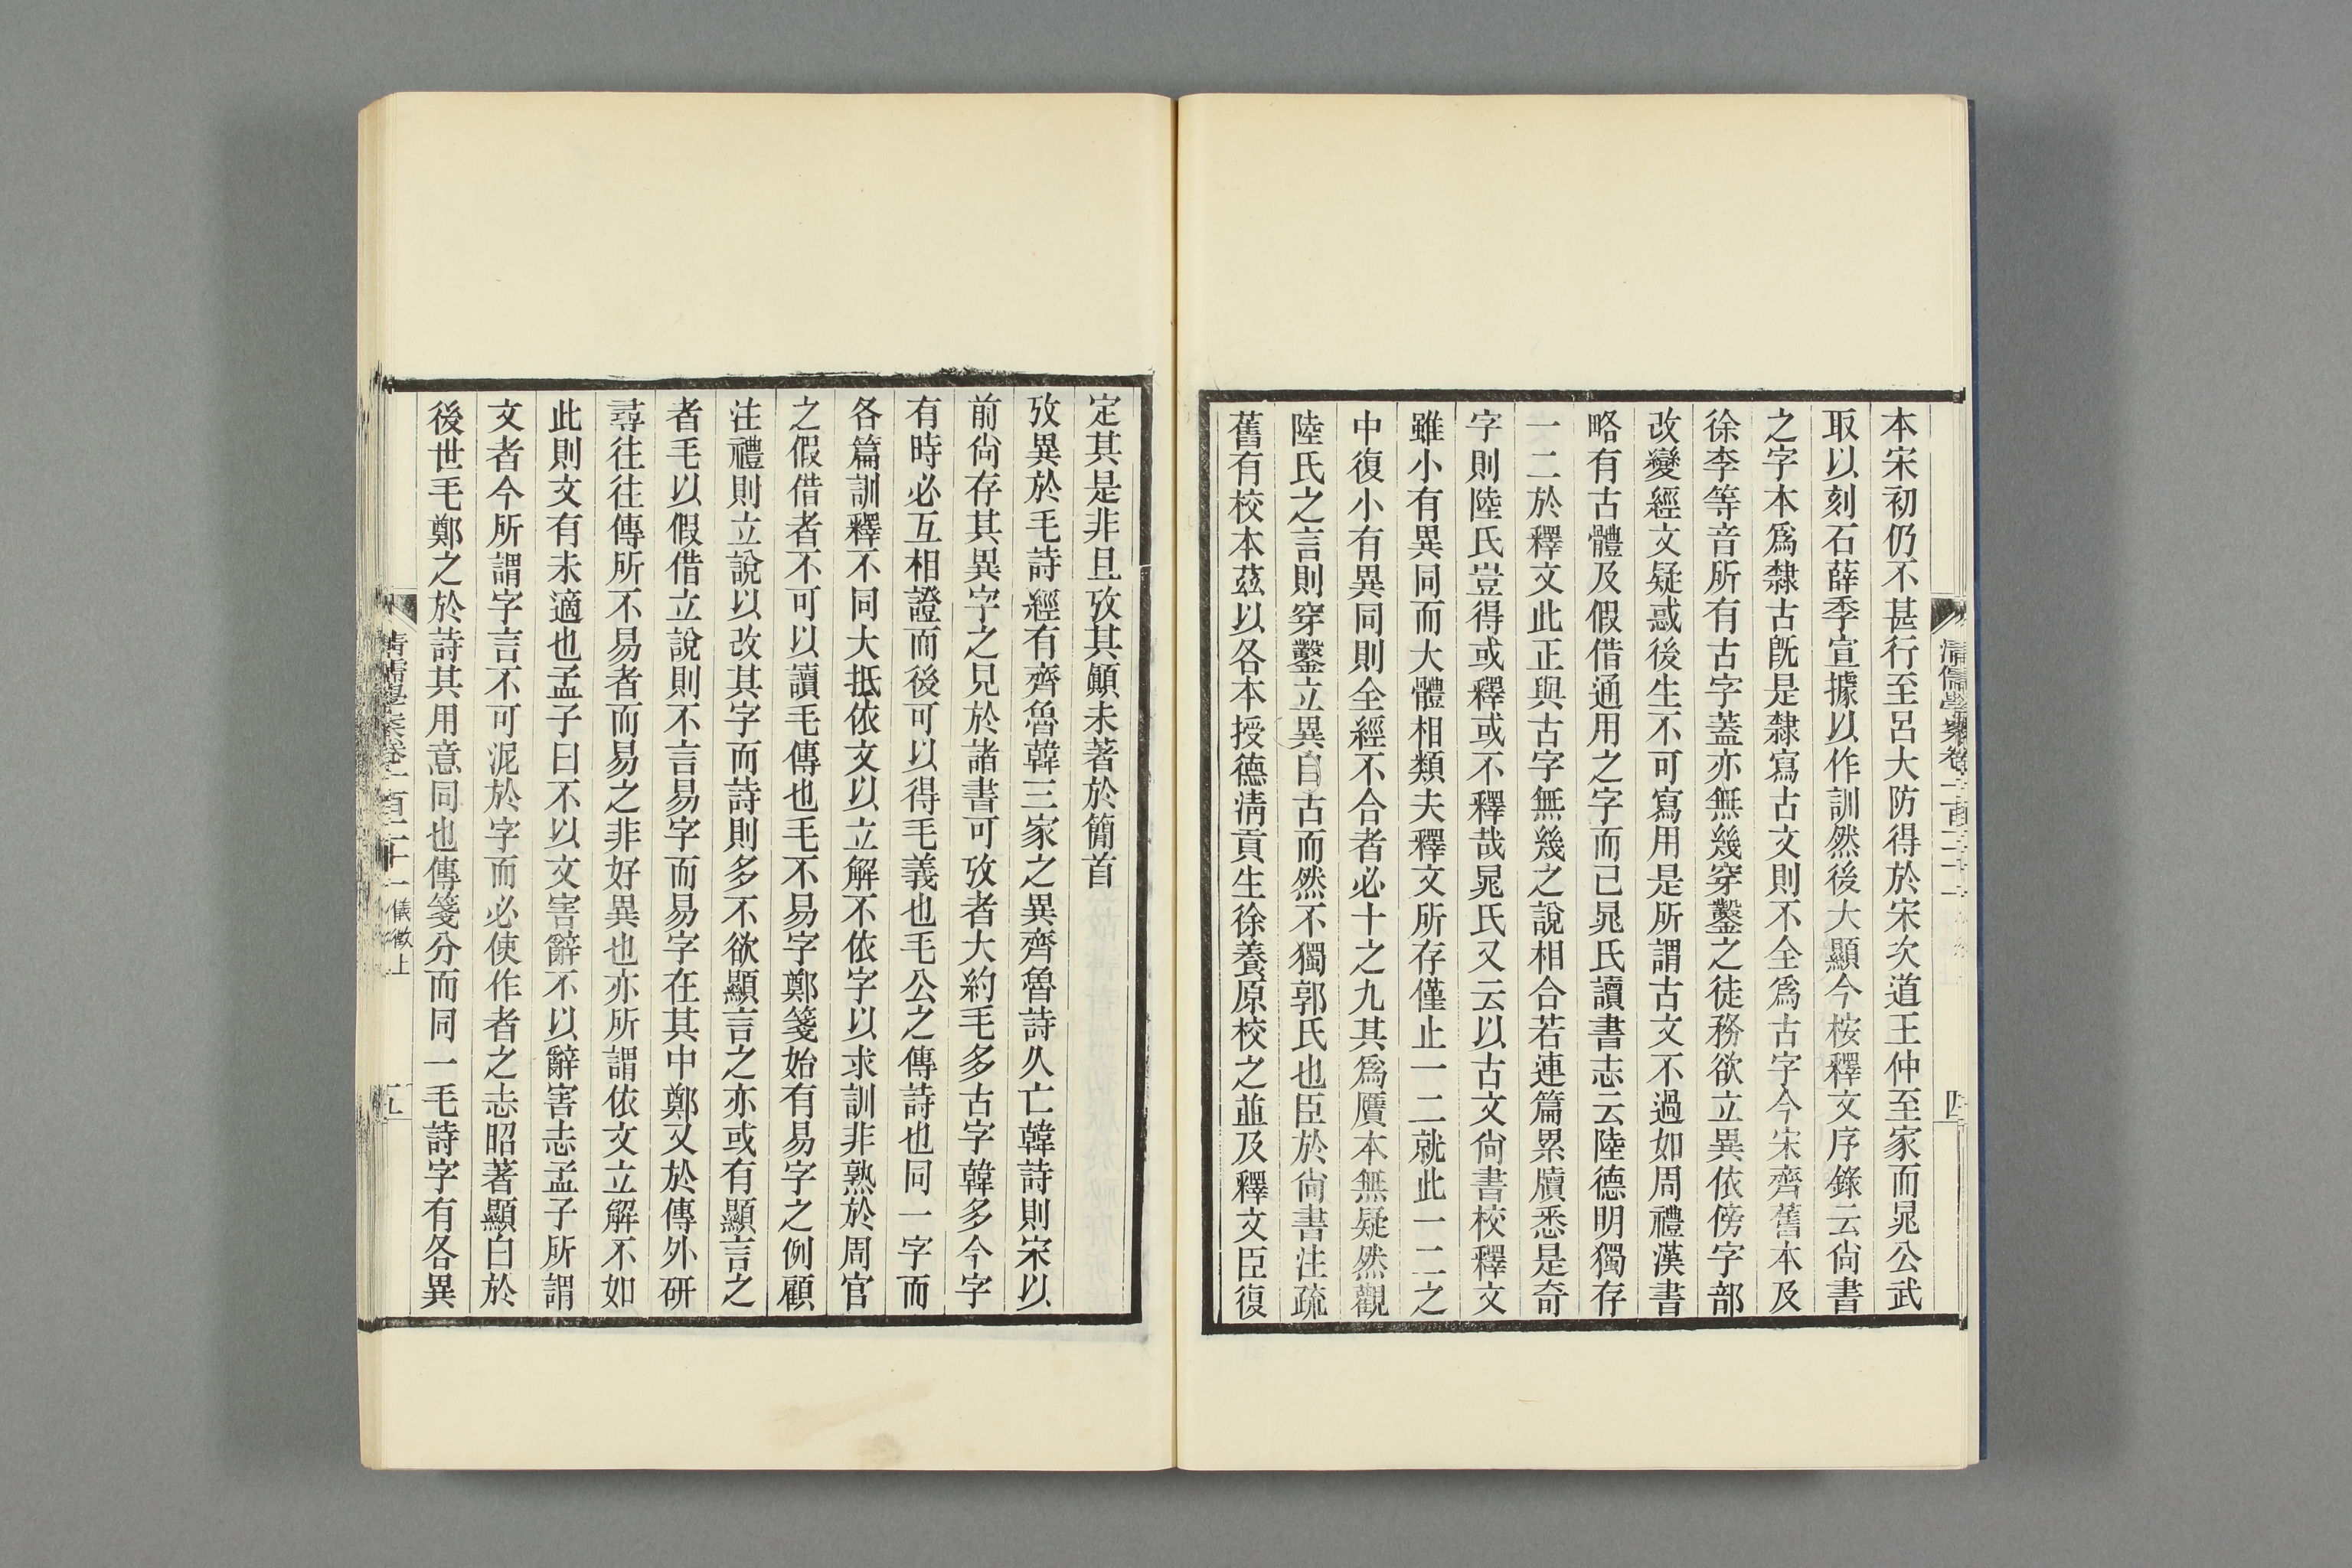 本宋初仍不甚行至呂大防得於宋次道王仲至家而晁公武
取以刻石薛季宣據以作訓然後大顯今桉釋文序錄云尙書
之字本爲隸古旣是隸寫古文則不全爲古字今宋齊舊本及
徐李等音所有古字蓋亦無幾穿鑿之徒務欲立異依傍字部
改變經文疑惑後生不可寫用是所謂古文不過如周禮漢書
略有古體及假借通用之字而已晁氏讀書志云陸德明獨存
一二於釋文此正與古字無幾之說相合若連篇累牘悉是奇
字則陸氏豈得或釋或不釋哉晁氏又云以古文尙書校釋文
雖小有異同而大體相類夫釋文所存僅止一二就此一二之
中復小有異同則全經不合者必十之九其爲贋本無疑然觀
陸氏之言則穿鑿立異自古而然不獨郭氏也臣於尙書注疏
舊有校本茲以各本授德淸貢生徐養原校之並及釋文臣復
定其是非且攷其顚末著於簡首
攷異於毛詩經有齊魯韓三家之異齊魯詩久亡韓詩則宋以
前尙存其異字之見於諸書可攷者大約毛多古字韓多今字
有時必互相證而後可以得毛義也毛公之傳詩也同一字而
各篇訓釋不同大抵依文以立解不依字以求訓非熟於周官
之假借者不可以讀毛傳也毛不易字鄭箋始有易字之例顧
注禮則立說以改其字而詩則多不欲顯言之亦或有顯言之
者毛以假借立說則不言易字而易字在其中鄭又於傳外硏
尋往往傳所不易者而易之非好異也亦所謂依文立解不如
此則文有未適也孟子曰不以文害辭不以辭害志孟子所謂
文者今所謂字言不可泥於字而必使作者之志昭著顯白於
後世毛鄭之於詩其用意同也傳箋分而同一毛詩字有各異
清儒學案卷一百二十一 儀徵上
五